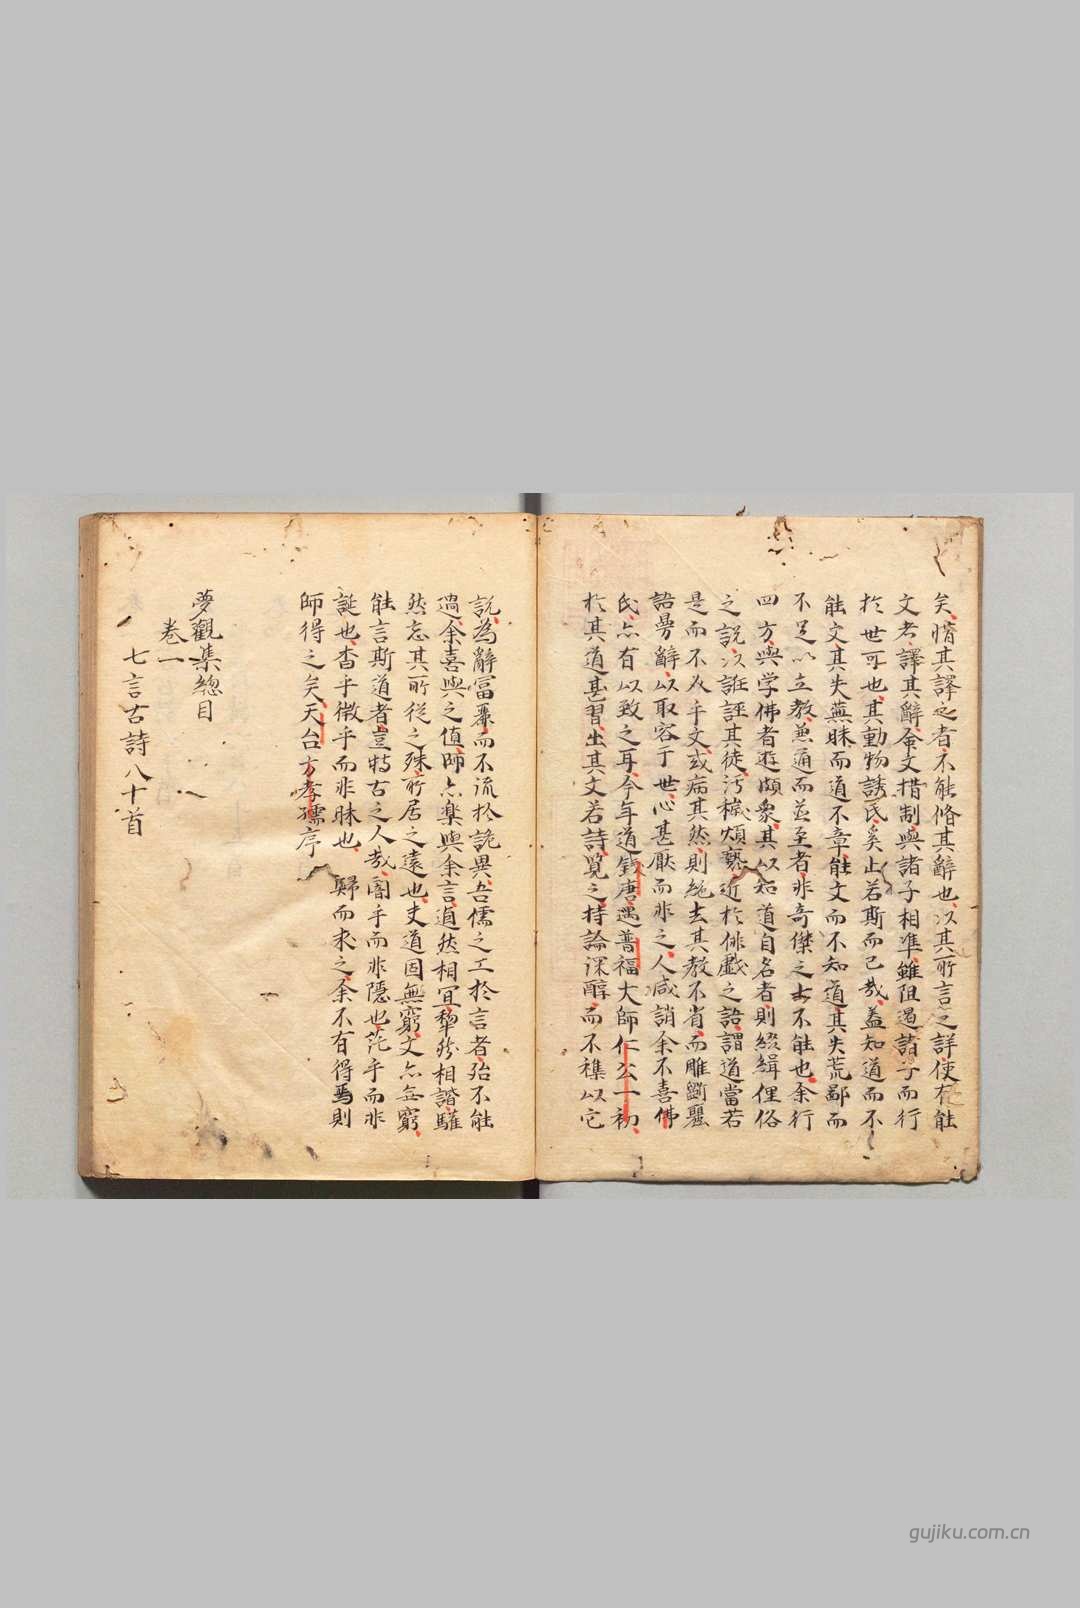 矣、惰其譯之者、不能脩其辭也、以其所言之詳、使有能
文者、譯其辭、命文措制、與諸子相準、雖阻遏諸子而行
於世可也、其動物誘民、奚止若斯而已哉、盖知道而不
能文、其失蕪昧而道不章、能文而不知道、其失荒鄙而
不足以立教、兼通而並至者、非奇傑之士不能也、余行
四方、與学佛者遊頗衆、其以知道自名者、則綴緝俚俗
之説、以誑誣其徒、汚穢煩褻、近於俳戲之語、謂道當若
是而不及乎文、或病其然、則絶去其教不省、而雕鏤
語辭、以取容于世、心甚厭而非之、人咸誚余不喜佛
氏、亦有以致之耳、今年道錢唐、遇普福大師仁公一初、
於其道甚習、出其文若詩、覽之、持論深醇、而不襍以它
説、為辭富麗、而不流於詭異、吾儒之工於言者、殆不能
過、余喜與之値、師亦樂與余言、適然相宜、犂然相諧、雖
然忘其所從之殊、所居之遠也、夫道固無窮、文亦無窮、
能言斯道者、豈特古之人哉、闇乎而非隱也、茫乎而非
誕也、杳乎微乎而非昧也、歸而求之、余不有得焉、則
師得之矣、天台方孝孺序
夢觀集總目
卷一
七言古詩八十首
gujiku.com.cn